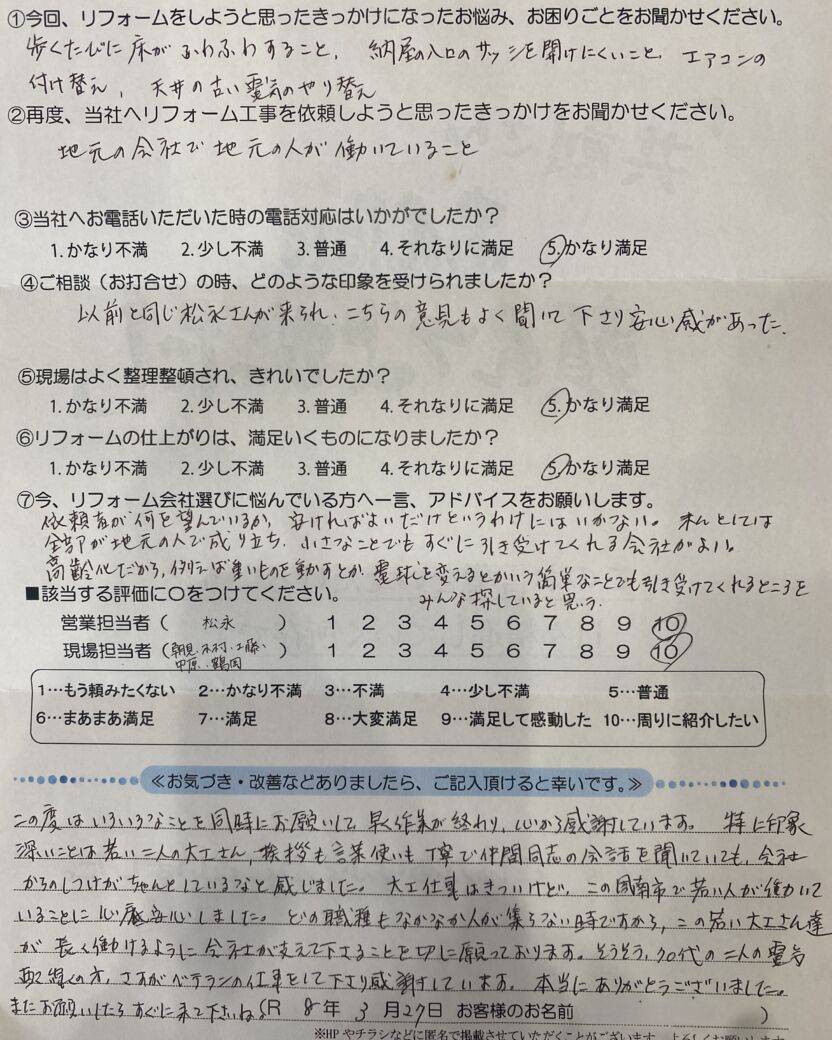 ①今回、リフォームをしようと思ったきっかけになったお悩み、お困りごとをお聞かせください。
歩くたびに床がふわふわすること、納屋の入口のサッシを開けにくいこと、エアコンの
付け替え、天井の古い電気のやり替え
②再度、当社へリフォーム工事を依頼しようと思ったきっかけをお聞かせください。
地元の会社で地元の人が働いていること
③当社へお電話いただいた時の電話対応はいかがでしたか？
1.かなり不満 2.少し不満 3.普通 4.それなりに満足 5.かなり満足
④ご相談（お打合せ）の時、どのような印象を受けられましたか？
以前と同じ松永さんが来られ、こちらの意見もよく聞いて下さり安心感があった。
⑤現場はよく整理整頓され、きれいでしたか？
1.かなり不満 2.少し不満 3.普通 4.それなりに満足 5.かなり満足
⑥リフォームの仕上がりは、満足いくものになりましたか？
1.かなり不満 2.少し不満 3.普通 4.それなりに満足 5.かなり満足
⑦今、リフォーム会社選びに悩んでいる方へ一言、アドバイスをお願いします。
依頼者が何を望んでいるか、安ければよいだけというわけにはいかない。私としては
全部が地元の人で成り立ち、小さなことでもすぐに引き受けてくれる会社がよい。
高齢化だから、例えば重いものを動かすとか、電球を変えるとかいう簡単なことでも引き受けてくれるところを
みんな探していると思う。
■該当する評価に〇をつけてください。
営業担当者（ 松永 ） 1 2 3 4 5 6 7 8 9 10
現場担当者（朝見、木村、工藤、中原、鶴岡） 1 2 3 4 5 6 7 8 9 10
1…もう頼みたくない 2…かなり不満 3…不満 4…少し不満 5…普通
6…まあまあ満足 7…満足 8…大変満足 9…満足して感動した 10…周りに紹介したい
≪お気づき・改善などありましたら、ご記入頂けると幸いです。≫
この度はいろいろなことを同時にお願いして早く作業が終わり、心から感謝しています。特に印象
深いことは若い二人の大工さん、挨拶も言葉使いも丁寧で仲間同志の会話を聞いていても、会社
からのしつけがちゃんとしているなと感じました。大工仕事はきついけど、この周南市で若い人が働いて
いることに心底安心しました。どの職種もなかなか人が集らない時ですから、この若い大工さん達
が長く働けるように会社が支えて下さることを切に願っております。そうそう、70代の二人の電気
取線の方、さすがベテランの仕事をして下さり感謝しています。本当にありがとうございました。
またお願いしたらすぐに来て下さいね（R 8年 3月27日 お客様のお名前 ）
※HPやチラシなどに匿名で掲載させていただくことがございます。よろしくお願いします